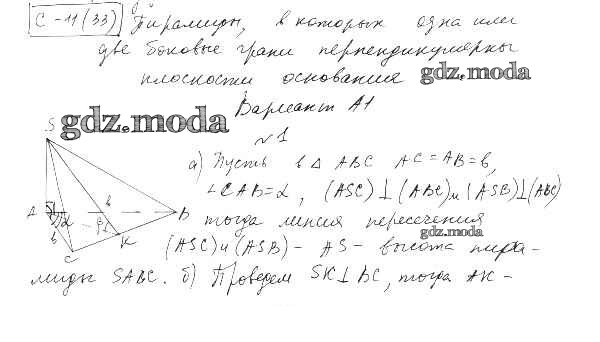 С-11(33) Пирамиды, в которых одна или
две боковые грани перпендикулярны
плоскости основания gdz.moda
Вариант А1
gdz.moda
№1
а) Пусть в △ ABC AC = AB = b,
∠CAB = α, (ASC) ⊥ (ABC) и (ASB) ⊥ (ABC)
тогда линия пересечения
gdz.moda
(ASC) и (ASB) - AS - высота пира-
миды SABC. б) Проведем SK ⊥ BC, тогда AK -
S
A
α
b
β
B
b
K
C